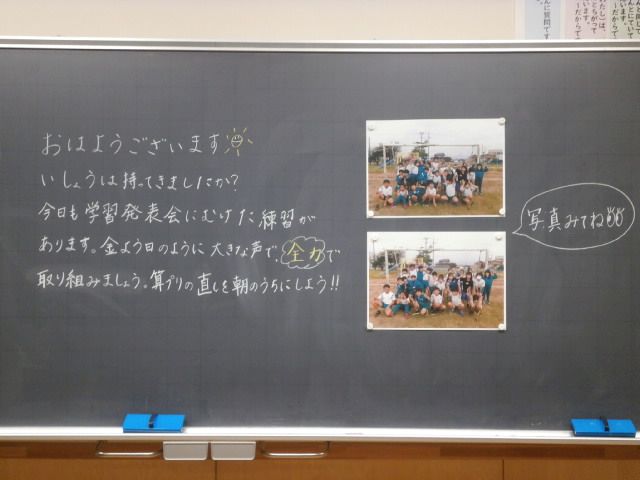 おはようございます
いしょうは持ってきましたか?
今日も学習発表会にむけた練習が
あります。金よう日のように大きな声で、全力で
取り組みましょう。算プリの直しを朝のうちにしよう!!
写真みてね